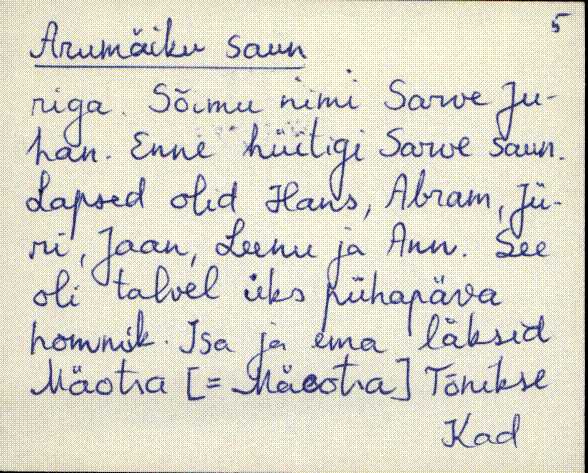 5
Arumäiku saun
riga. Sõimu nimi Sarve Ju-
han. Enne hüitigi Sarve saun.
Lapsed olid Hans, Abram, Jü-
ri, Jaan, Leenu ja Ann. See
oli talvel üks pühapäva
hommik. Isa ja ema läksid
Mäotra [= Mäeotra] Tõnikse
Kad